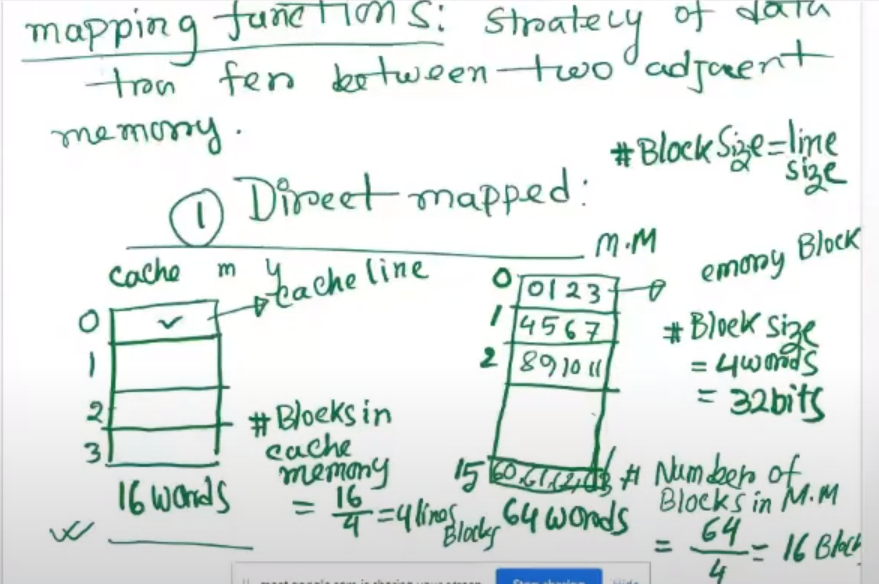 mapping functions: strategy of data
tran fer between two adjacent
memory.
# Block Size = line
size
① Direct mapped:
cache m y
cache line
M.M
emory Block
0
1
2
3
16 words
# Blocks in
cache
memory
= 16/4 = 4 lines
Blocks
0 0 1 2 3
1 4 5 6 7
2 8 9 10 11
15 60, 61, 62, 63
64 words
# Block size
= 4 words
= 32 bits
# Number of
Blocks in M.M
= 64/4 = 16 Bloch